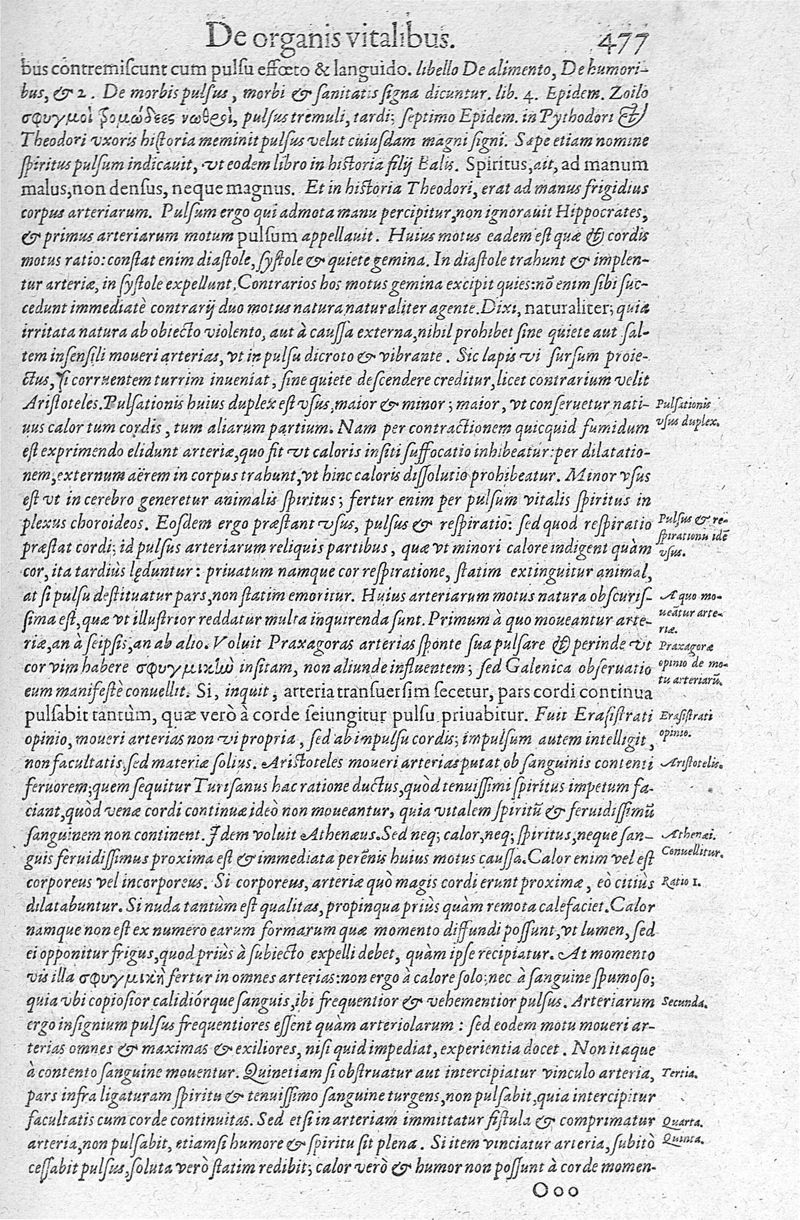 De organis vitalibus. 477
bus contremiscunt cum pulsu effœto & languido. libello De alimento, De humori-
bus, & 2. De morbis pulsus, morbi & sanitatis signa dicuntur. lib. 4. Epidem. Zoilo
σφυγμοὶ τρομώδεες νωθεροὶ, pulsus tremuli, tardi; septimo Epidem. in Pythodori &
Theodori vxoris historia meminit pulsus velut cuiusdam magni signi. Sæpe etiam nomine
spiritus pulsum indicauit, vt eodem libro in historia filij Balis. Spiritus, ait, ad manum
malus, non densus, neque magnus. Et in historia Theodori, erat ad manus frigidius
corpus arteriarum. Pulsum ergo qui admota manu percipitur, non ignorauit Hippocrates,
& primus arteriarum motum pulsum appellauit. Huius motus eadem est quæ & cordis
motus ratio: constat enim diastole, systole & quiete gemina. In diastole trahunt & implen-
tur arteriæ, in systole expellunt. Contrarios hos motus gemina excipit quies: nō enim sibi suc-
cedunt immediatè contrarij duo motus natura naturaliter agente. Dixi, naturaliter; quia
irritata natura ab obiecto violento, aut à caussa externa, nihil prohibet sine quiete aut sal-
tem insensili moueri arterias, vt in pulsu dicroto & vibrante. Sic lapis vi sursum proie-
ctus, si corruentem turrim inueniat, sine quiete descendere creditur, licet contrarium velit
Aristoteles. Pulsationis huius duplex est vsus, maior & minor; maior, vt conseruetur nati-
uus calor tum cordis, tum aliarum partium. Nam per contractionem quicquid fumidum
est exprimendo elidunt arteriæ, quo fit vt caloris insiti suffocatio inhibeatur: per dilatatio-
nem, externum aërem in corpus trahunt, vt hinc caloris dissolutio prohibeatur. Minor vsus
est vt in cerebro generetur animalis spiritus; fertur enim per pulsum vitalis spiritus in
plexus choroideos. Eosdem ergo præstant vsus, pulsus & respiratio: sed quod respiratio
præstat cordi; id pulsus arteriarum reliquis partibus, quæ vt minori calore indigent quàm
cor, ita tardius lęduntur: priuatum namque cor respiratione, statim extinguitur animal,
at si pulsu destituatur pars, non statim emoritur. Huius arteriarum motus natura obscuris-
sima est, quæ vt illustrior reddatur multa inquirenda sunt. Primum à quo moueantur arte-
riæ, an à seipsis, an ab alio. Voluit Praxagoras arterias sponte sua pulsare & perinde vt
cor vim habere σφυγμικὴν insitam, non aliunde influentem; sed Galenica obseruatio
eum manifestè conuellit. Si, inquit, arteria transuersim secetur, pars cordi continua
pulsabit tantùm, quæ verò à corde seiungitur pulsu priuabitur. Fuit Erasistrati
opinio, moueri arterias non vi propria, sed ab impulsu cordis; impulsum autem intelligit,
non facultatis, sed materiæ solius. Aristoteles moueri arterias putat ob sanguinis contenti
feruorem; quem sequitur Turisanus hac ratione ductus, quòd tenuissimi spiritus impetum fa-
ciant, quòd venæ cordi continuæ ideò non moueantur, quia vitalem spiritū & feruidissimū
sanguinem non continent. Idem voluit Athenæus. Sed neq; calor, neq; spiritus, neque san-
guis feruidissimus proxima est & immediata perēnis huius motus caussa. Calor enim vel est
corporeus vel incorporeus. Si corporeus, arteriæ quò magis cordi erunt proximæ, eò citiùs
dilatabuntur. Si nuda tantùm est qualitas, propinqua priùs quàm remota calefaciet. Calor
namque non est ex numero earum formarum quæ momento diffundi possunt, vt lumen, sed
ei opponitur frigus, quod priùs à subiecto expelli debet, quàm ipse recipiatur. At momento
vis illa σφυγμικὴ fertur in omnes arterias: non ergo à calore solo; nec à sanguine spumoso;
quia vbi copiosior calidiórque sanguis, ibi frequentior & vehementior pulsus. Arteriarum
ergo insignium pulsus frequentiores essent quàm arteriolarum: sed eodem motu moueri ar-
terias omnes & maximas & exiliores, nisi quid impediat, experientia docet. Non itaque
à contento sanguine mouentur. Quinetiam si obstruatur aut intercipiatur vinculo arteria,
pars infra ligaturam spiritu & tenuissimo sanguine turgens, non pulsabit, quia intercipitur
facultatis cum corde continuitas. Sed etsi in arteriam immittatur fistula & comprimatur
arteria, non pulsabit, etiamsi humore & spiritu sit plena. Si item vinciatur arteria, subitò
cessabit pulsus, soluta verò statim redibit; calor verò & humor non possunt à corde momen-
Ooo
Pulsationis
vsus duplex.
Pulsus & re-
spirationis idē
vsus.
A quo mo-
ueātur arte-
riæ.
Praxagoræ
opinio de mo-
tu arteriarū.
Erasistrati
opinio.
Aristotelis.
Athenæi.
Conuellitur.
Ratio 1.
Secunda.
Tertia.
Quarta.
Quinta.